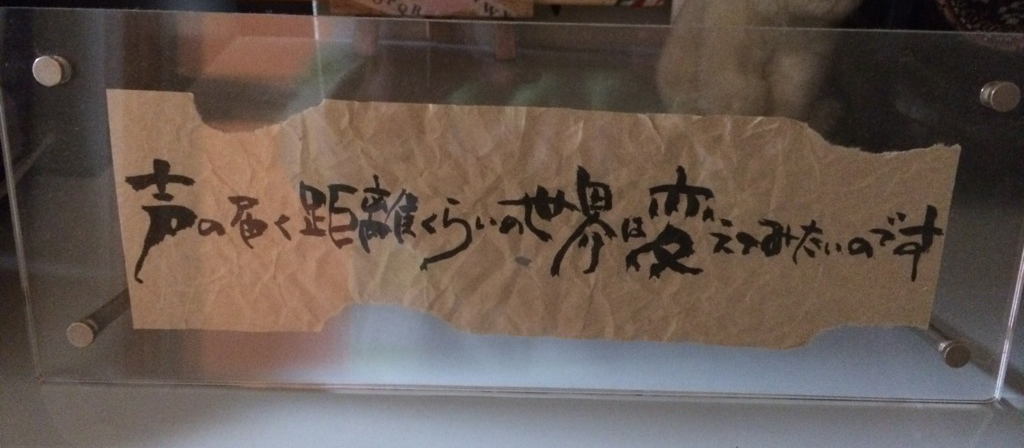 PQR
声の届く距離くらいの世界は変えてみたいのです